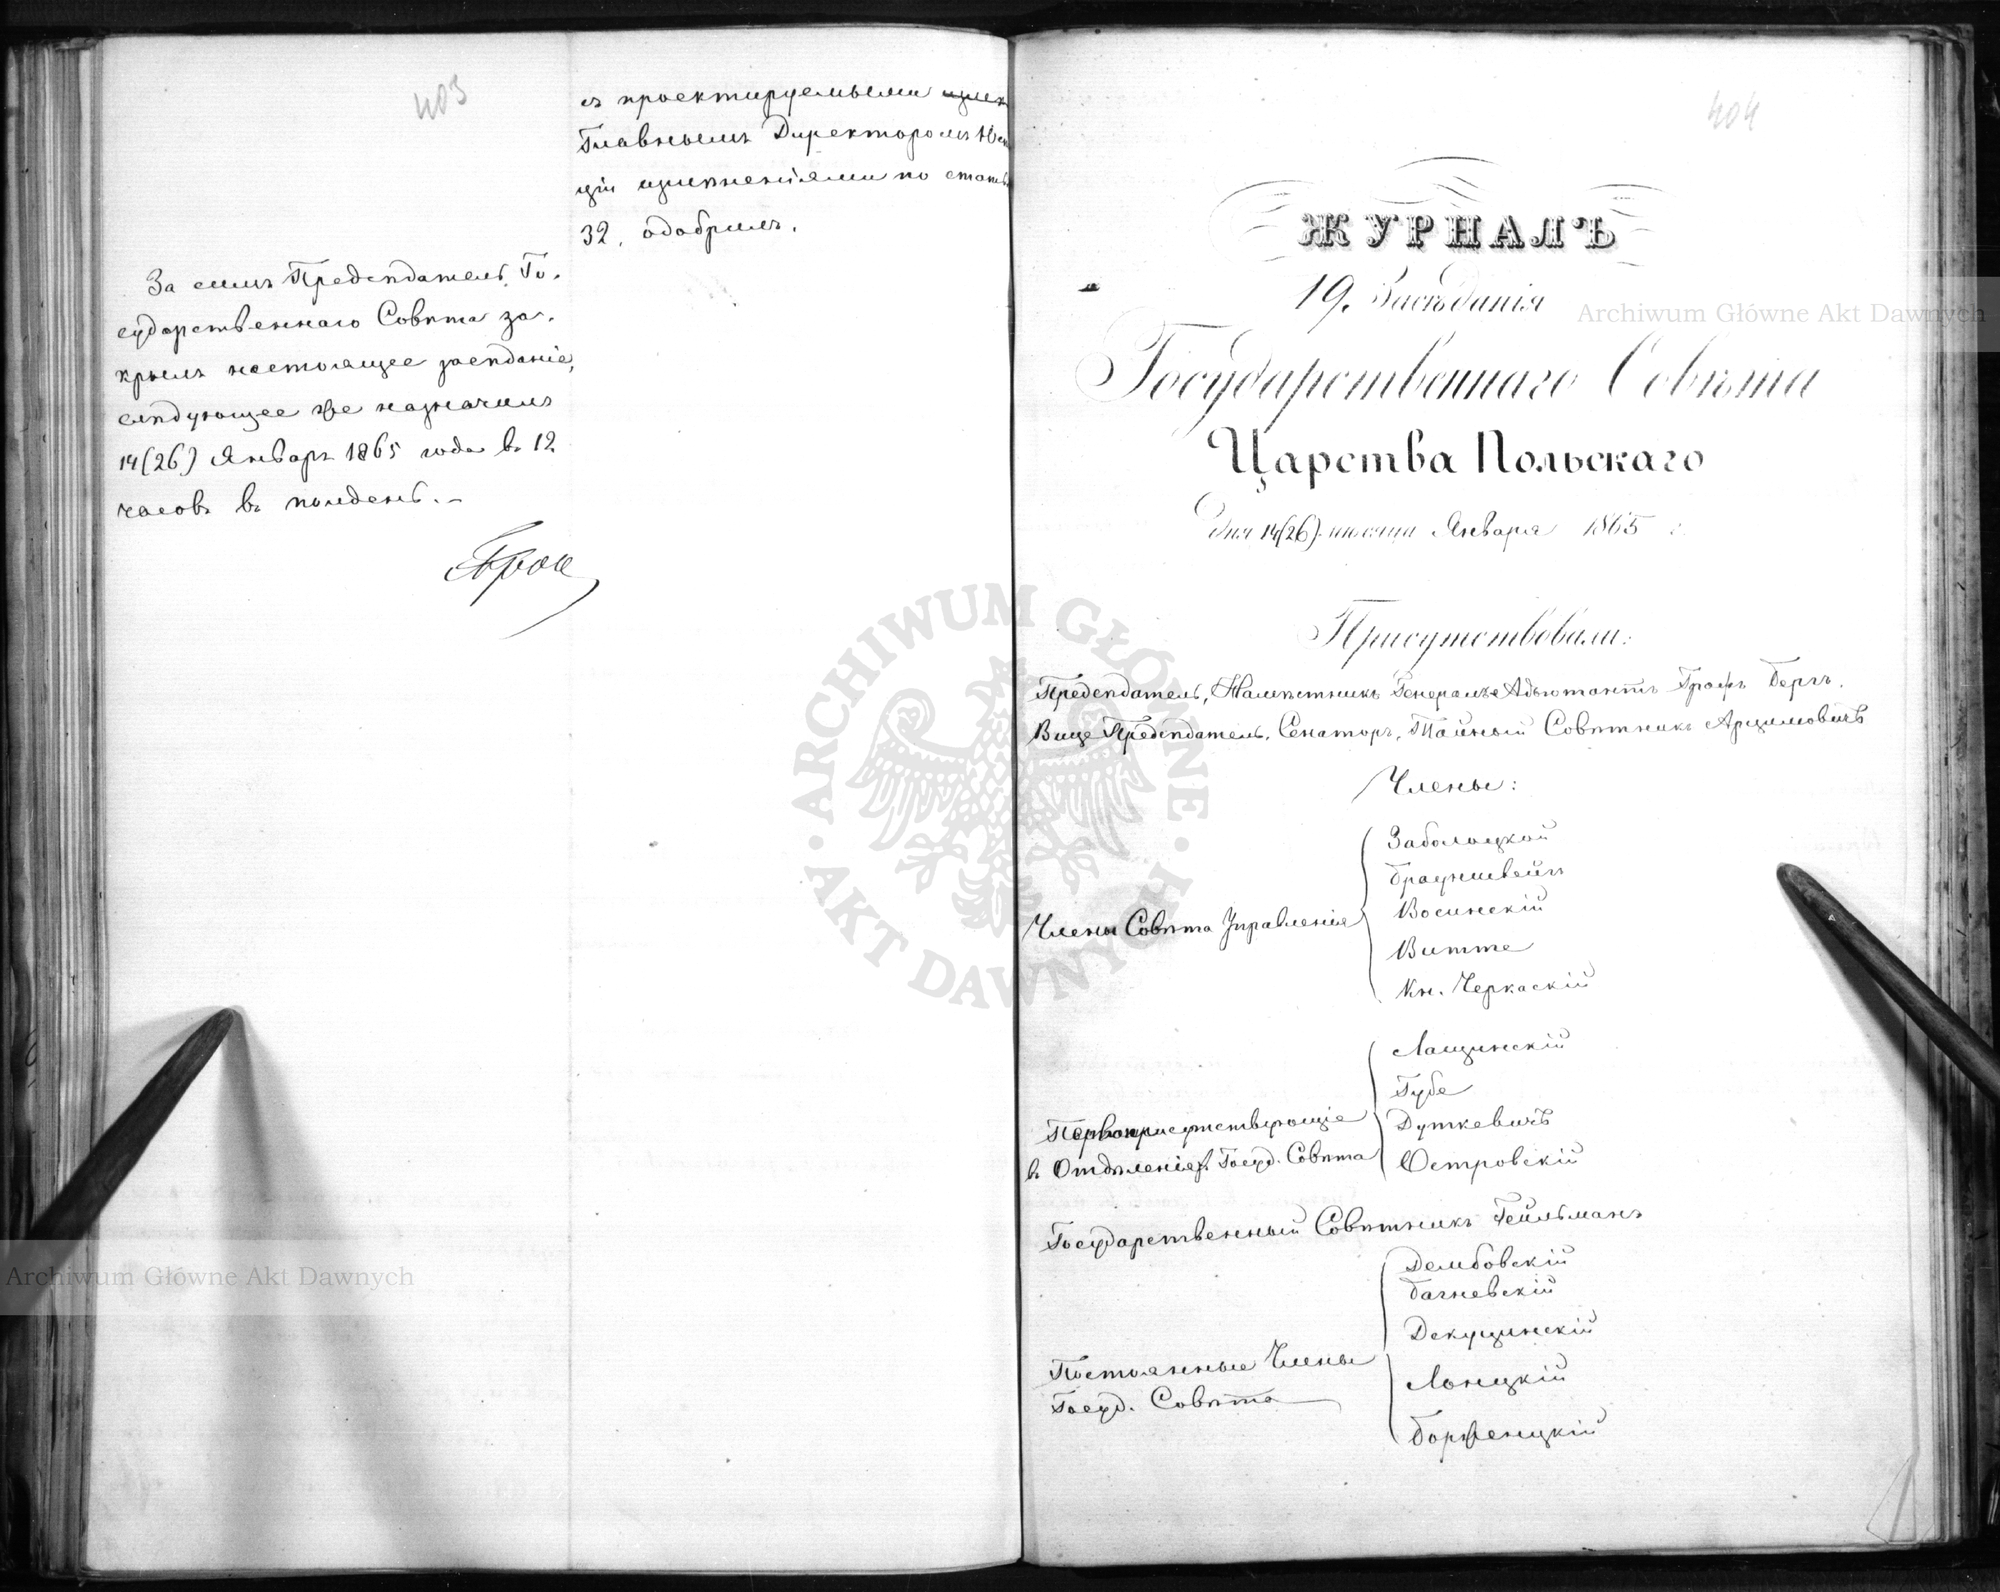 403
съ проектируемыми
Главнымъ Директоромъ Юст
ціи измѣненіями по стать
32, одобрилъ.
За симъ Предсѣдатель Го-
сударственнаго Совѣта за-
крылъ настоящее засѣданіе,
слѣдующее же назначилъ
14(26) Январѣ 1865 года въ 12
часовъ въ полдень.–
404
ЖУРНАЛЪ
19. Засѣданія
Государственнаго Совѣта
Царства Польскаго
дня 14(26) мѣсяца Января 1865 г.
Присутствовали:
Предсѣдатель, Намѣстникъ Генералъ-Адъютантъ Графъ Бергъ.
Вице Предсѣдатель, Сенаторъ, Тайный Совѣтникъ Арцимовичъ
Члены:
Члены Совѣта Управленія
Заболоцкой
Брауншвейгъ
Восинскій
Витте
Кн. Черкаскій
Первоприсутствующіе
въ Отдѣленіяхъ Госуд. Совѣта
Лащинскій
Губе
Дуткевичъ
Островскій
Государственный Совѣтникъ Гейльманъ
Постоянные Члены
Госуд. Совѣта
Дембовскій
Багневскій
Декуцинскій
Лонцкій
Борженцкій
Archiwum Główne Akt Dawnych
Archiwum Główne Akt Dawnych
ARCHIWUM GŁÓWNE · AKT DAWNYCH ·